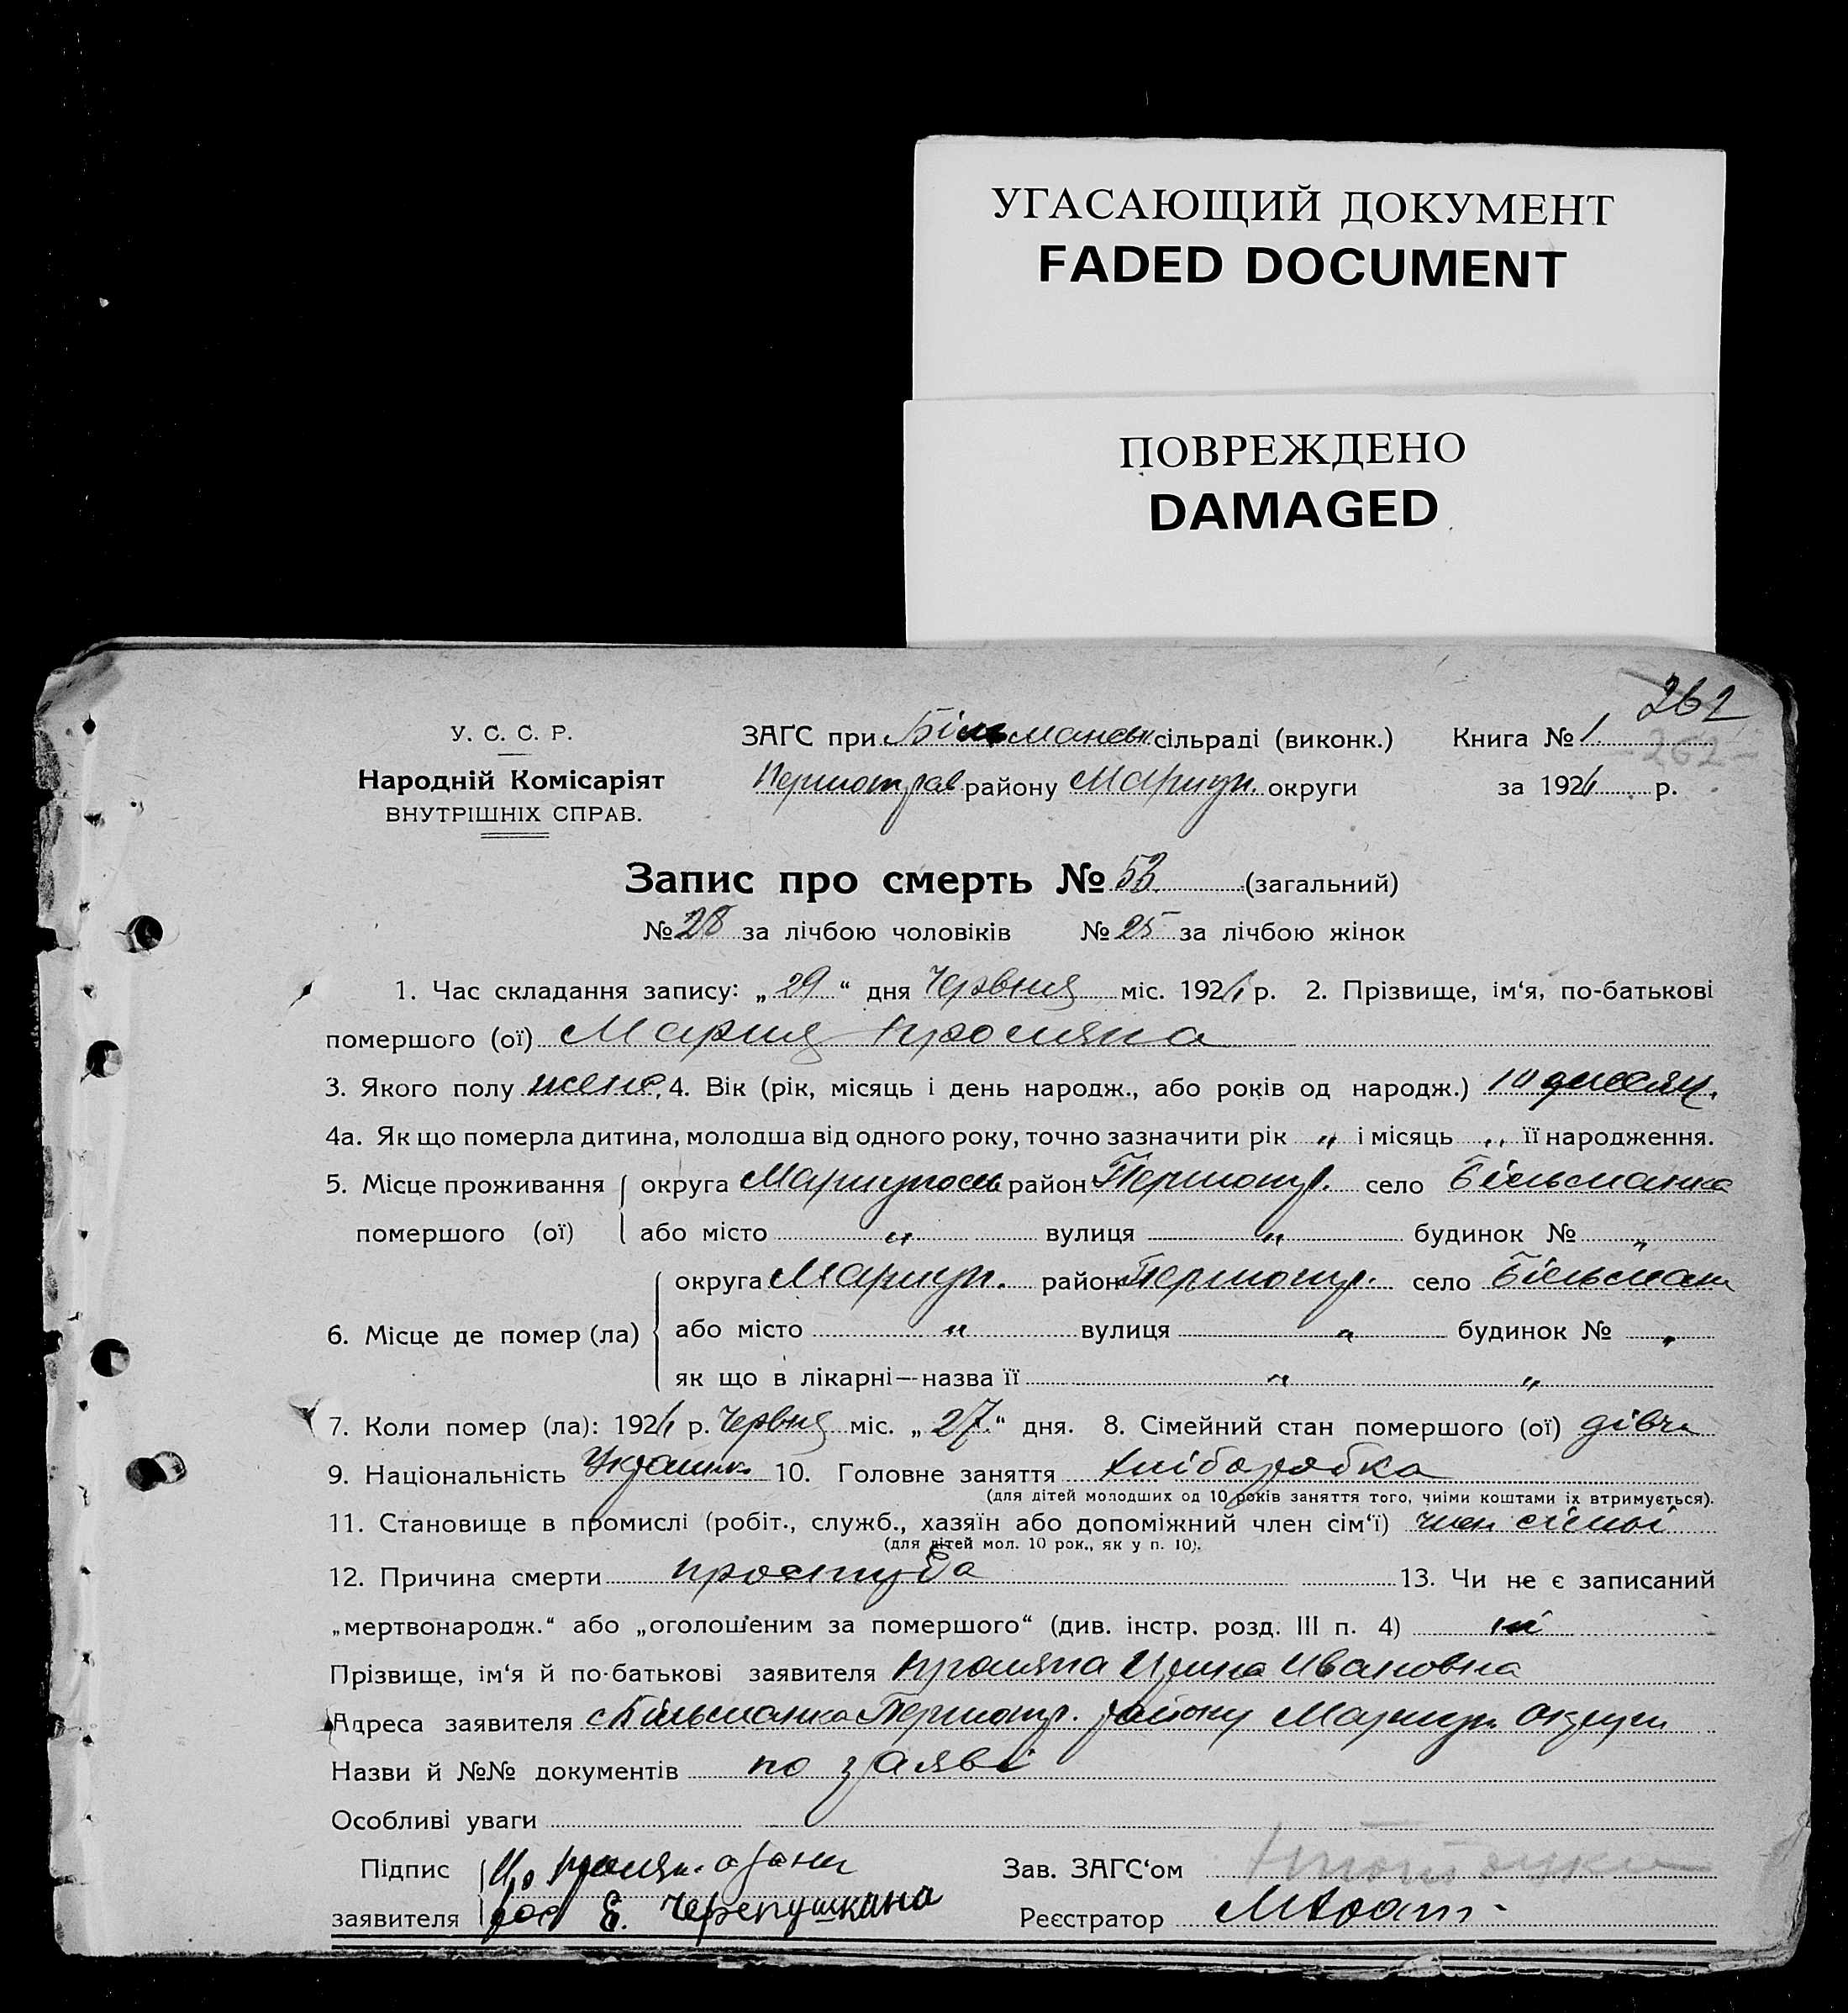 УГАСАЮЩИЙ ДОКУМЕНТ
FADED DOCUMENT
ПОВРЕЖДЕНО
DAMAGED
262
У. С. С. Р.
Народній Комісаріят
ВНУТРІШНІХ СПРАВ.
ЗАГС при Більманськ сільраді (виконк.)
району Маріуп. округи
Книга № 1
-262-
за 192 р.
Запис про смерть № 53 (загальний)
№ 28 за лічбою чоловіків № 25 за лічбою жінок
1. Час складання запису: „29“ дня Червня міс. 192 р. 2. Прізвище, ім‘я, по-батькові
помершого (ої) Мария
3. Якого полу жено, 4. Вік (рік, місяць і день народж., або років од народж.) 10
4а. Як що померла дитина, молодша від одного року, точно зазначити рік „ і місяць „ її народження.
5. Місце проживання округа район село Більманка
помершого (ої) або місто „ вулиця „ будинок № „
округа Мариуп. район село Більман
6. Місце де помер (ла) або місто „ вулиця „ будинок № „
як що в лікарні—назва її „ „
7. Коли помер (ла): 192 р. Червня міс. „27“ дня. 8. Сімейний стан помершого (ої)
9. Національність 10. Головне заняття хліборобка
(для дітей молодших од 10 років заняття того, чиїми коштами їх втримується).
11. Становище в промислі (робіт., служб., хазяїн або допоміжний член сім‘ї) член сімьї
(для дітей мол. 10 рок., як у п. 10).
12. Причина смерти простуда 13. Чи не є записаний
„мертвонародж.“ або „оголошеним за помершого“ (див. інстр. розд. III п. 4) ні
Прізвище, ім‘я й по-батькові заявителя Ивановна
Адреса заявителя с Більманка району Мариуп. округи
Назви й №№ документів по заяві
Особливі уваги
Підпис
заявителя Е. Черепушкана
Зав. ЗАГС‘ом
Реєстратор